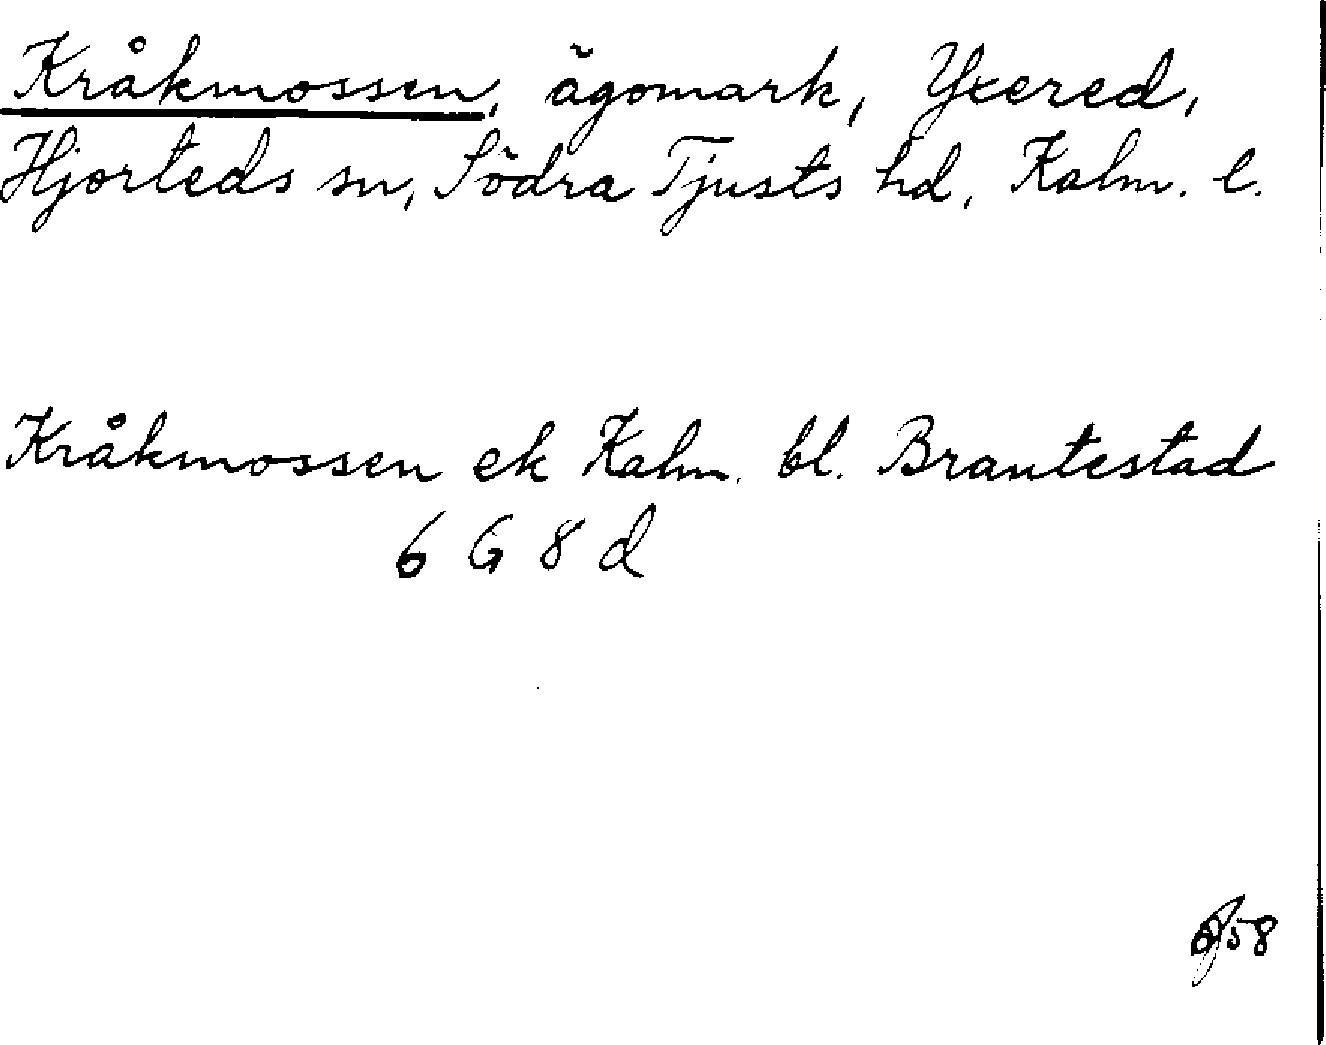 Kråkmossen, ägomark, Yxered,
Hjorteds sn, Södra Tjusts hd, Kalm. l.
Kråkmossen ek Kalm. bl. Brantestad
6 G 8 d
58